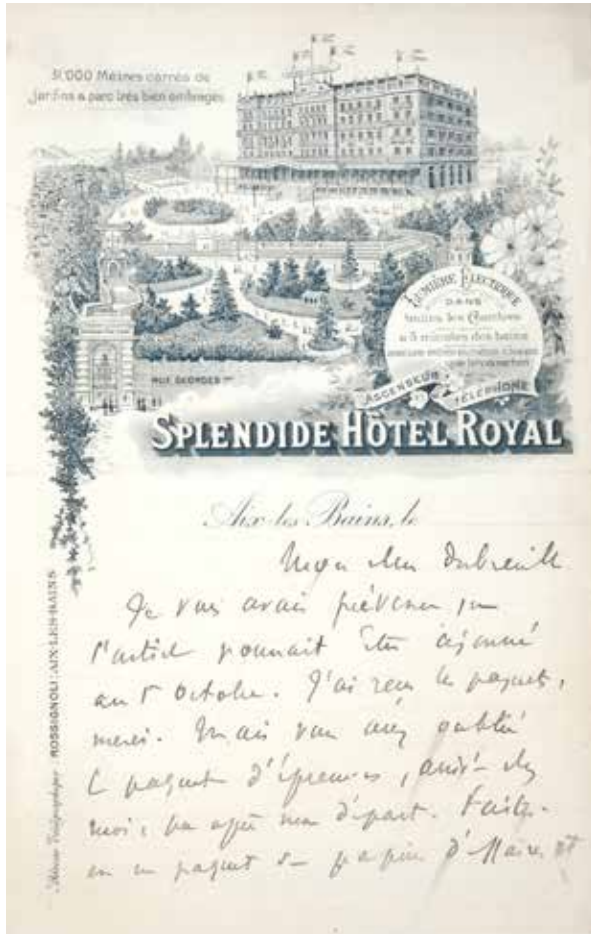 31000 Mètres carrés de
Jardins & parc très bien ombragés
LUMIÈRE ÉLECTRIQUE
DANS
toutes les Chambres
à 5 minutes des bains
ASCENSEUR
TÉLÉPHONE
RUE GEORGES 1ER
SPLENDIDE HÔTEL ROYAL
Aix-les-Bains, le
Mon cher Dubreuilh
Je vous avais prévenu que
l'article pourrait être ajourné
au 1er Octobre. J'ai reçu le paquet,
merci. Mais vous avez oublié
le paquet d'épreuves, arrivé chez
moi après mon départ. Faites-
en un paquet
Adresse Télégraphique ROSSIGNOLI-AIX-LES-BAINS